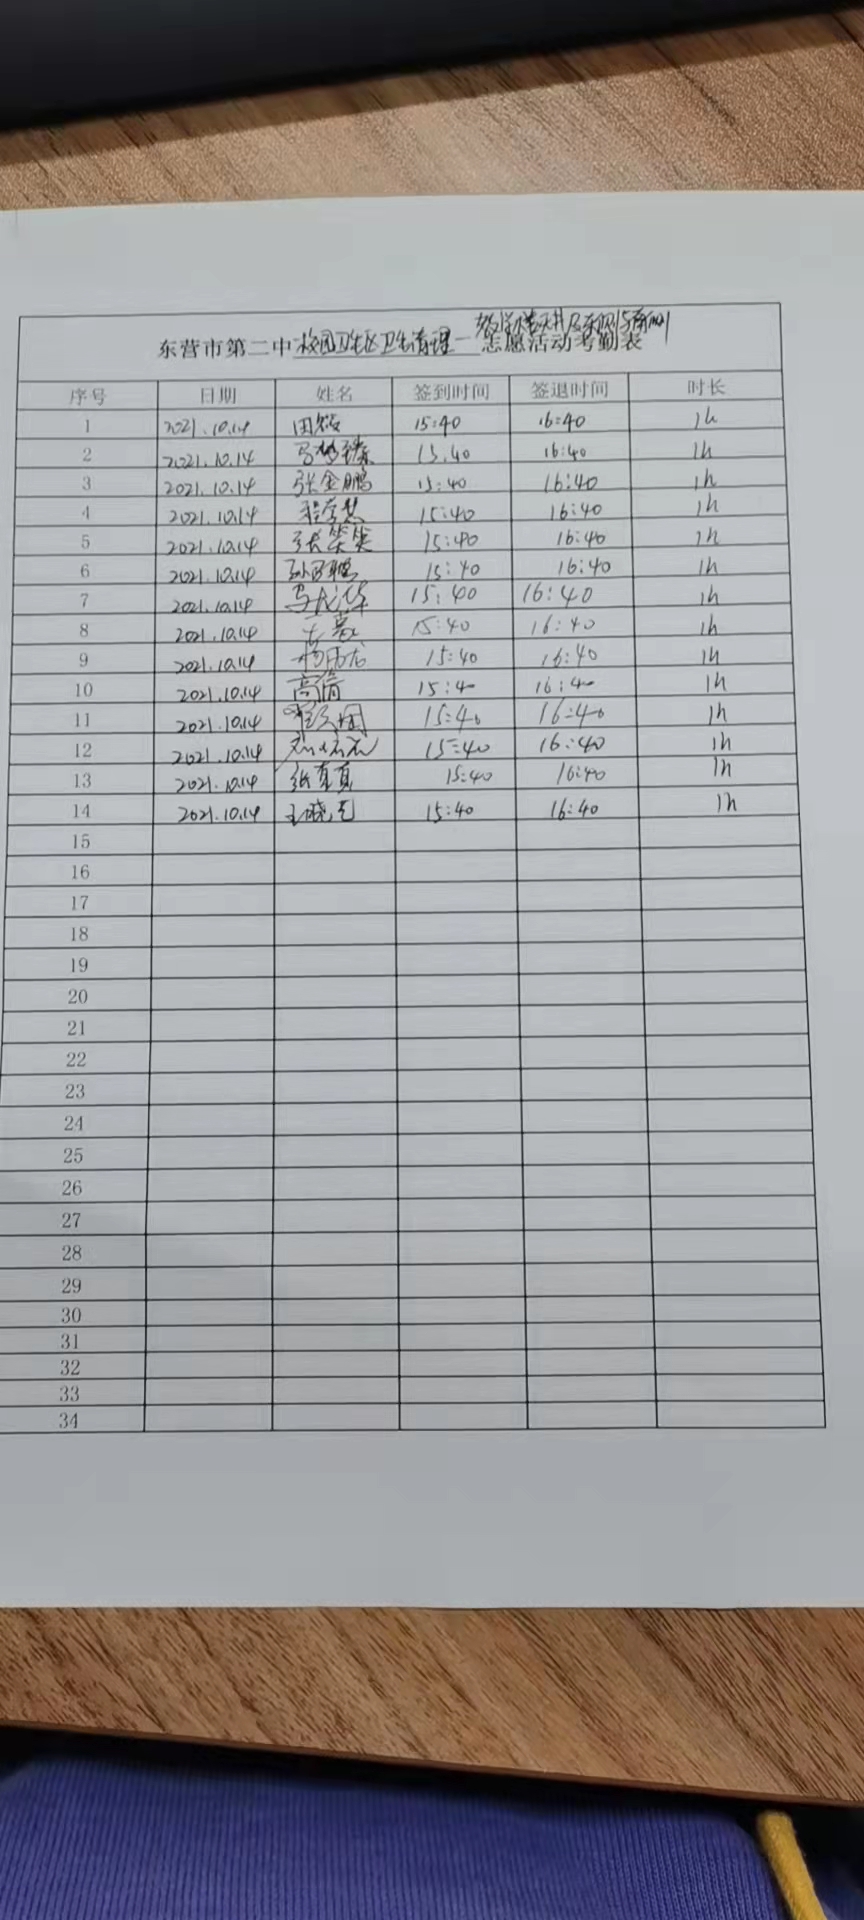 教学楼天井及东侧与南侧
东营市第二中校园卫生区卫生清理志愿活动考勤表
序号 日期 姓名 签到时间 签退时间 时长
1 2021.10.14 15:40 16:40 1h
2 2021.10.14 15.40 16:40 1h
3 2021.10.14 张金鹏 15:40 16:40 1h
4 2021.10.14 15:40 16:40 1h
5 2021.10.14 15:40 16:40 1h
6 2021.10.14 15:40 16:40 1h
7 2021.10.14 马龙华 15:40 16:40 1h
8 2021.10.14 15:40 16:40 1h
9 2021.10.14 15:40 16:40 1h
10 2021.10.14 高倩 15:40 16:40 1h
11 2021.10.14 15:40 16:40 1h
12 2021.10.14 15:40 16:40 1h
13 2021.10.14 张真真 15:40 16:40 1h
14 2021.10.14 15:40 16:40 1h
15
16
17
18
19
20
21
22
23
24
25
26
27
28
29
30
31
32
33
34